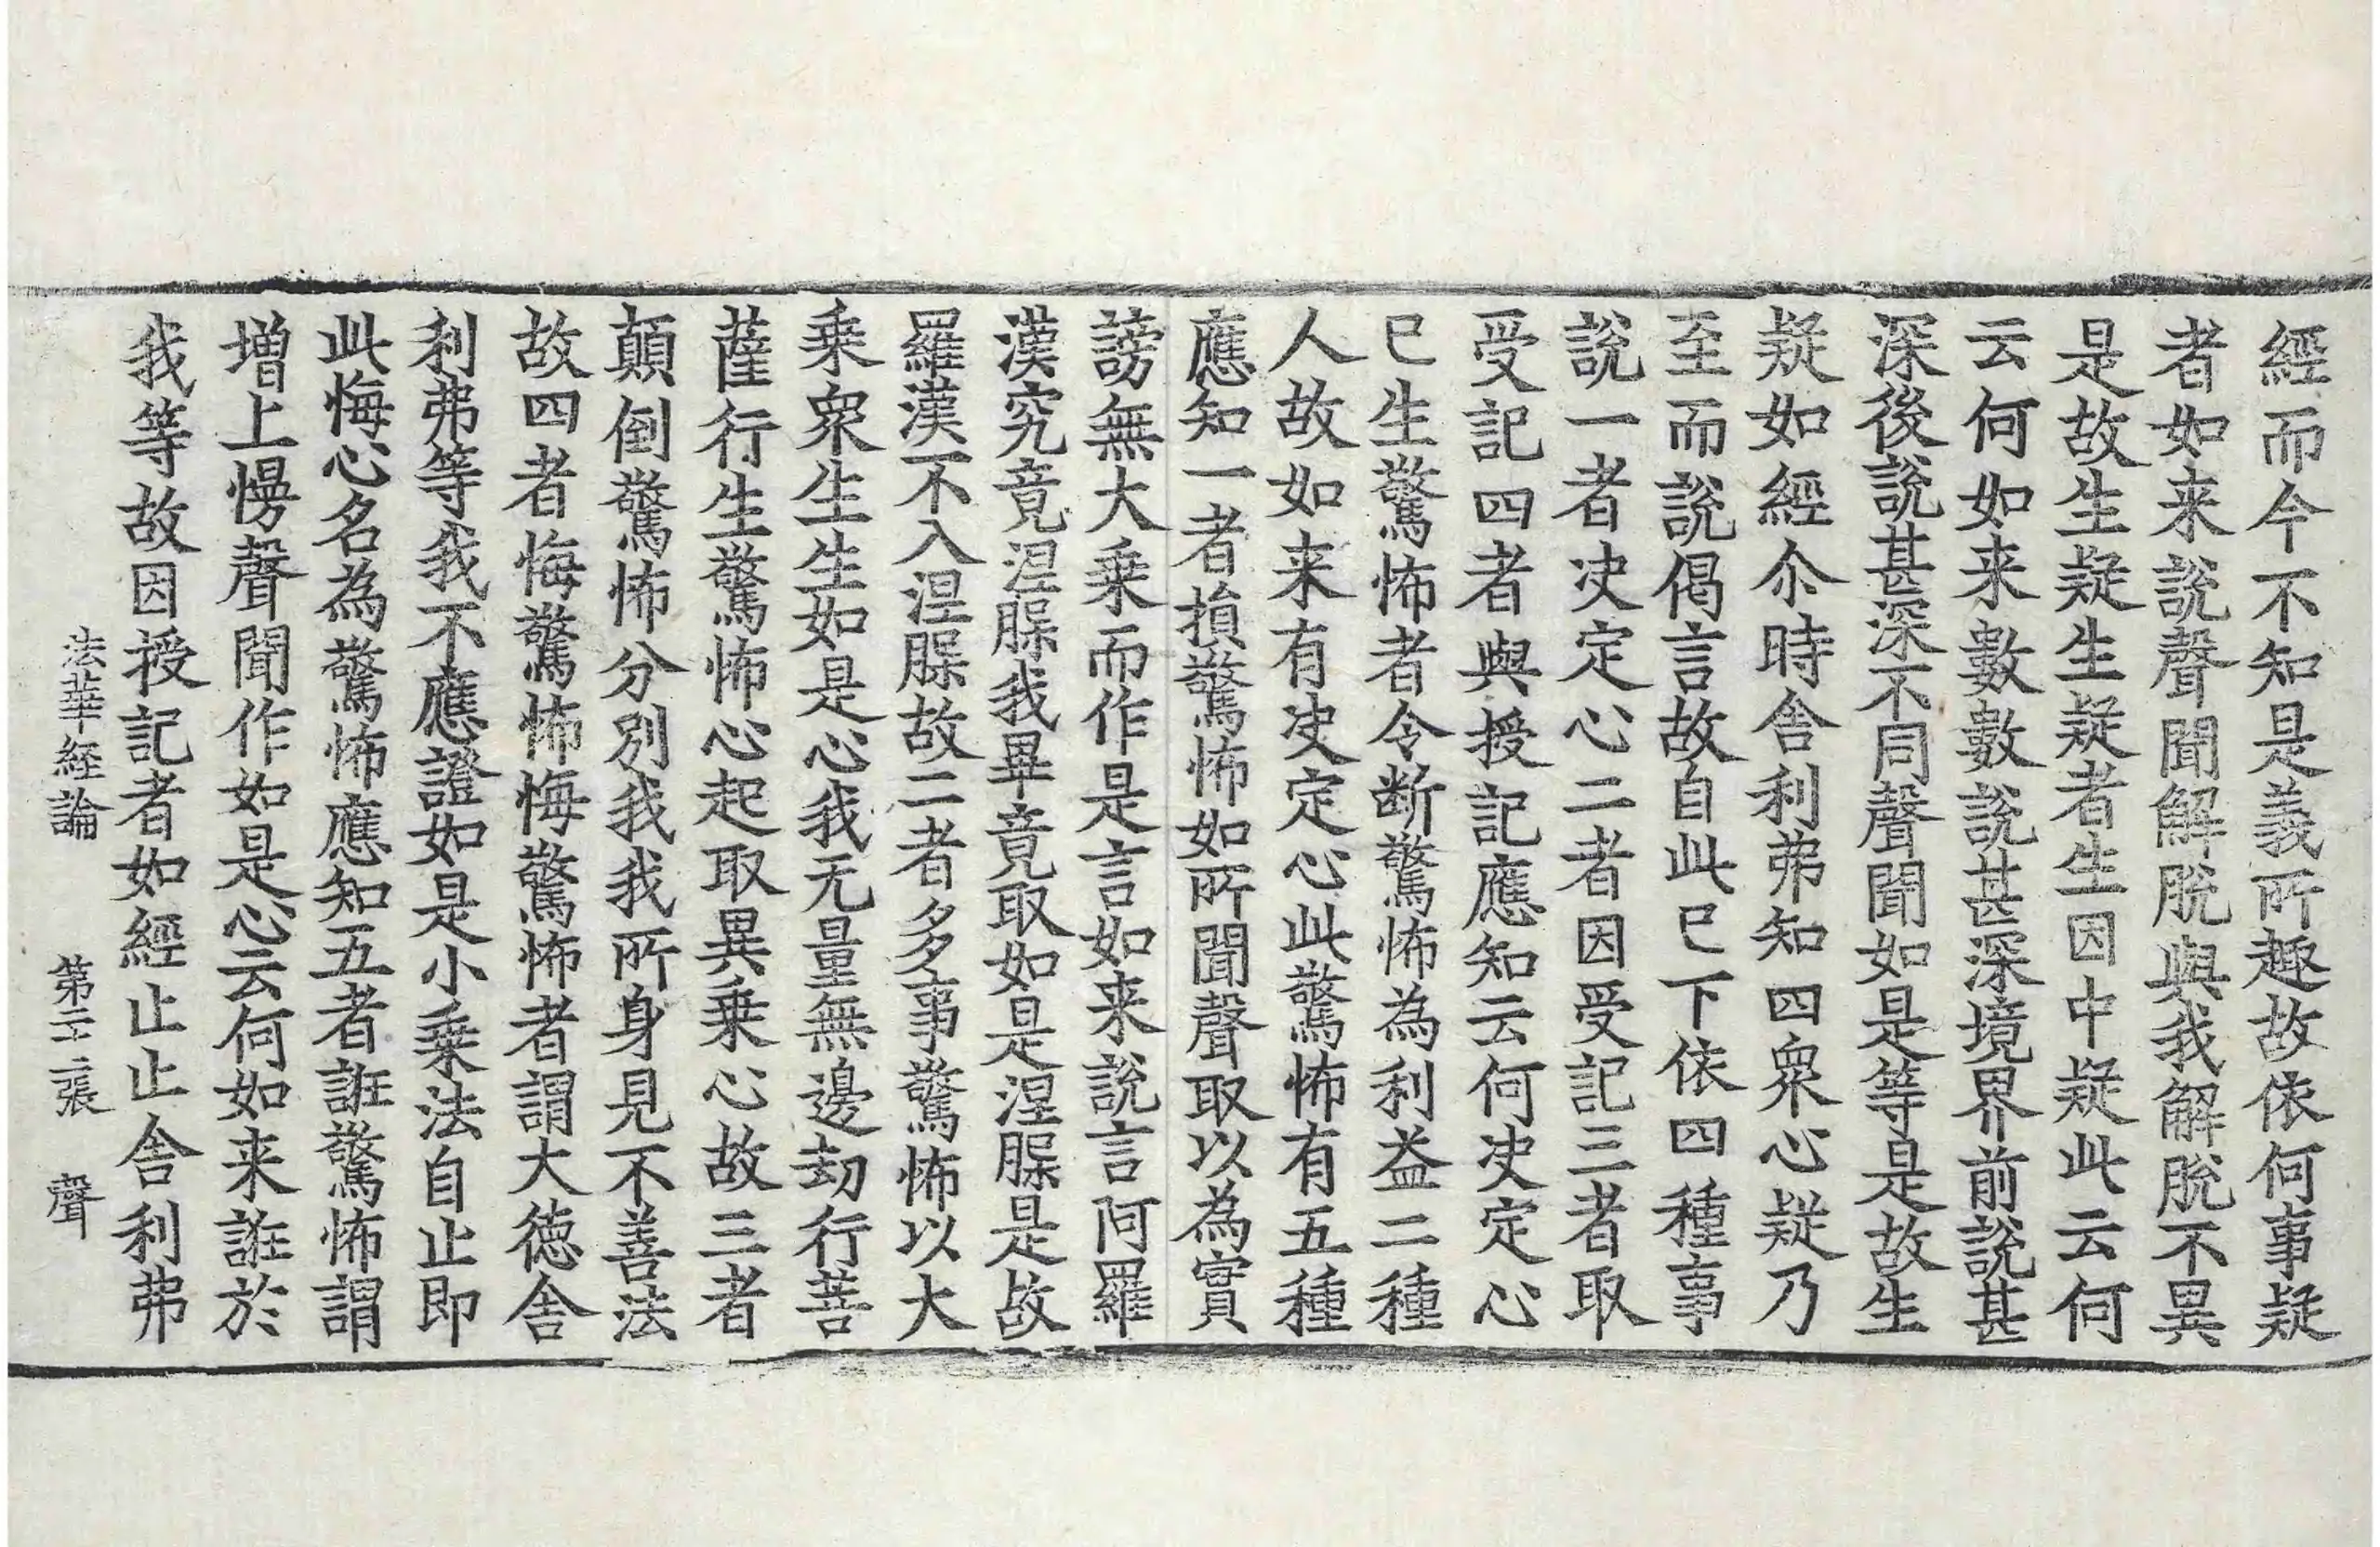 經而今不知是義所趣故依何事疑
者如来說聲聞解脫與我解脫不異
是故生疑生疑者生因中疑此云何
云何如来數數說甚深境界前說甚
深後說甚深不同聲聞如是等是故生
疑如經尒時舎利弗知四衆心疑乃
至而說偈言故自此已下依四種事
說一者决定心二者因受記三者取
受記四者與授記應知云何决定心
已生驚怖者令断驚怖為利益二種
人故如来有决定心此驚怖有五種
應知一者損驚怖如所聞聲取以為實
謗無大乗而作是言如来說言阿羅
漢究竟涅腂我畢竟取如是涅腂是故
羅漢不入涅腂故二者多事驚怖以大
乗衆生生如是心我无量無邊劫行菩
薩行生驚怖心起取異乗心故三者
顛倒驚怖分別我我所身見不善法
故四者悔驚怖悔驚怖者謂大德舎
利弗等我不應證如是小乗法自止即
此悔心名為驚怖應知五者誑驚怖謂
增上慢聲聞作如是心云何如来誑於
我等故因授記者如經止止舎利弗
法華経論　第二十二張　聲